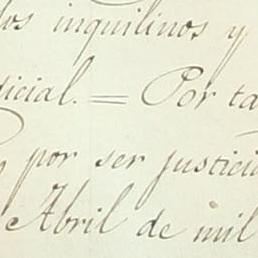 los inquilinos y
dicial. = Por ta
por ser justicia
Abril de mil